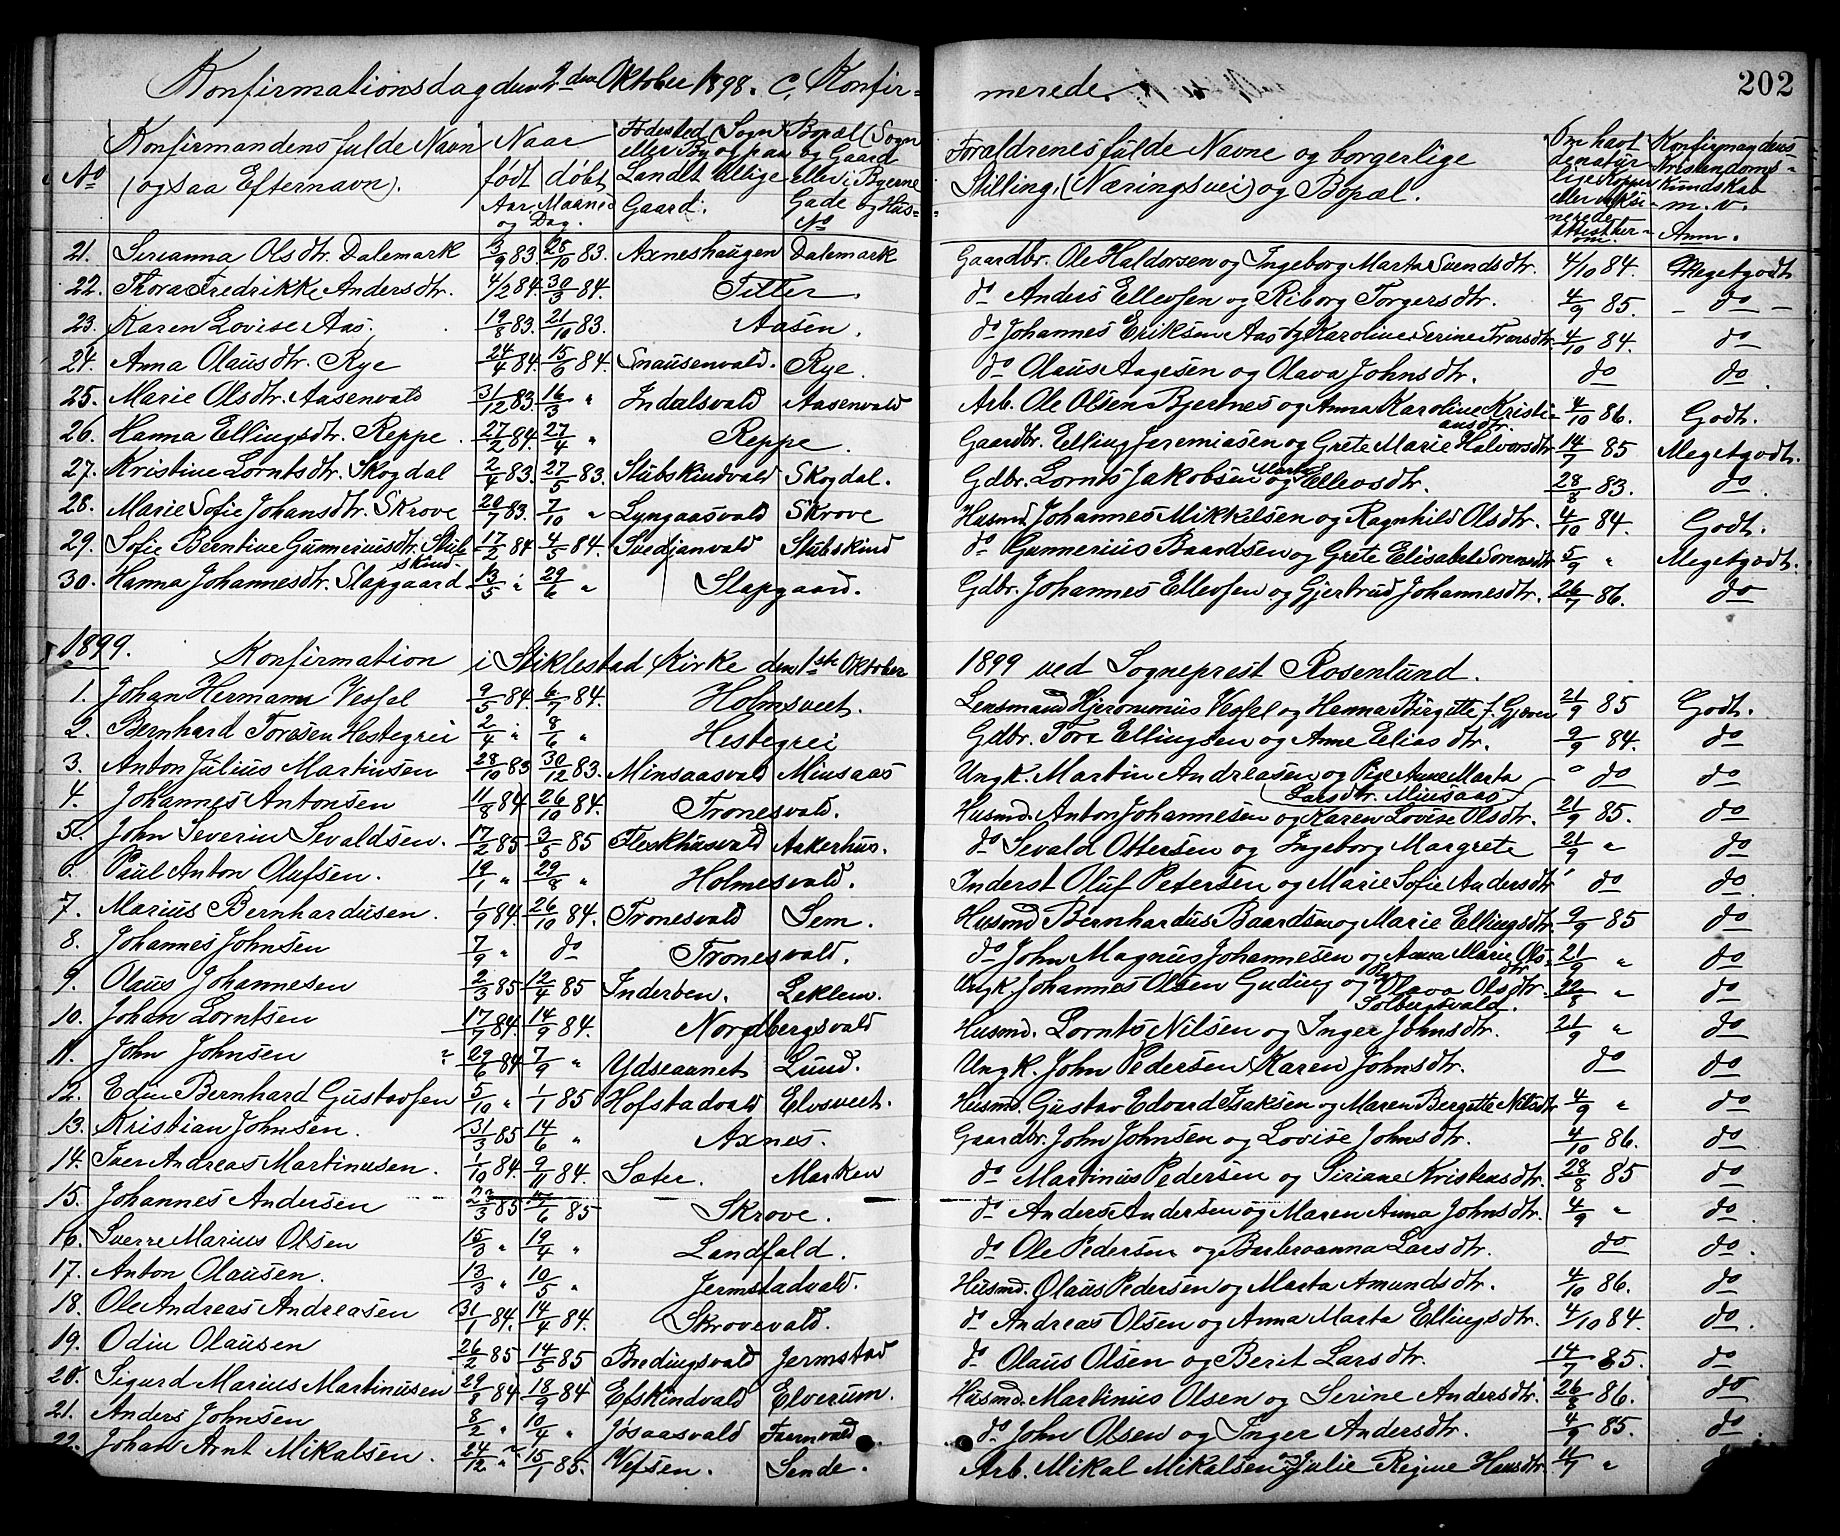 202
Konfirmationsdag den 2den Oktober 1898. C, Konfir- merede.
No
Konfirmandens fulde Navn (ogsaa Efternavn).
Naar født døbt Aar, Maaned og Dag.
Fødested (Sogn eller By og paa Landet tillige Gaard.
Bopæl (Sogn og Gaard eller i Byerne Gade og Hus- No
Forældrenes fulde Navne og borgerlige Stilling, (Næringsvei) og Bopæl.
Om havt de natur- lige Kopper eller vaksi- nerede
Konfirmandens Kristendoms- kundskab m. v. Anm.
21. Serianna Olsdtr. Dalemark 13/9 83. 28/10 83. Axneshaugen Dalemark Gaardbr. Ole Haldorsen og Ingeborg Marta Svendsdtr. 4/10 84. Megetgodt
22. Thora Fredrikke Andersdtr. 4/2 84. 30/3 84. Tilter. do Anders Ellevsen og Riborg Torgersdtr. 4/9 85. - do -
23. Karen Lovise Aas. 19/8 83. 21/10 83. Aasen. do Johannes Eriksen Aas og Karoline Serine Fransdtr. 4/10 84. do
24. Anna Olausdtr. Rye 24/4 84. 15/6 84. Snausenvald. Rye. do Olaus Aagesen og Olava Johnsdtr. do do
25. Marie Olsdtr. Aasenvald 31/12 83. 16/3 " Indalsvald Aasenvald Arb. Ole Olsen Bjertnes og Anna Karoline Kristi- ansdtr. 4/10 86. Godt.
26. Hanna Ellingsdtr. Reppe. 27/2 84. 27/4 " Reppe. Gaardbr. Elling Jeremiasen og Grete Marie Halvorsdtr 14/7 85 Megetgodt.
27. Kristine Lorntsdtr. Skogdal 2/4 83. 27/5 83. Stubskindvald Skogdal. Gdbr. Lornts Jakobsen og Marta Ellevsdtr. 28/8 83. do
28. Marie Sofie Johansdtr. Skrove 20/7 83. 7/10 " Lyngaasvald Skrove Husmd. Johannes Mikkelsen og Ragnhild Olsdtr. 4/10 84. Godt.
29. Sofie Berntine Gunneriusdtr. Stub- skind. 17/2 84. 4/5 84. Svedjanvald Stubskind do Gunnerius Baardsen og Grete Elisabet Sorensdtr 5/9 " Megetgodt.
30. Hanna Johannesdtr. Slapgaard 13/5 " 29/6 " Slapgaard. Gdbr. Johannes Ellevsen og Gjertrud Johannesdtr. 26/7 86. do
1899. Konfirmation i Stiklestad Kirke den 1ste Oktober 1899 ved Sogneprest Rosenlund.
1. Johan Hermann Vessel 9/5 84. 6/7 84. Holmsveet. Lensmand Hjeronimus Vessel og Hanna Birgitte f. Gjæven 21/9 85 Godt.
2. Bernhard Toresen Hestegrei 2/4 " 8/6 " Hestegrei Gdbr. Tore Ellingsen og Anne Eliasdtr. 9/9 84. do
3. Anton Julius Martinsen 28/10 83 30/12 83. Minsaasvald Minsaas Ungk. Martin Andreasen og Pige Anne Marta Larsdtr. Minsaas do do
4. Johannes Antonsen 11/8 84. 26/10 84. Tronesvald. Husmd. Anton Johannesen og Karen Lovise Olsdtr. 21/9 85. do
5. John Severin Sevaldsen. 17/2 85 3/5 85 Fleskhusvald Aakerhus. do Sevald Ottersen og Ingeborg Margrete 21/9 " do
6. Paul Anton Olufsen. 19/1 " 29/8 " Holmesvald. Inderst Oluf Petersen og Marie Sofie Andersdtr do do
7. Marius Bernhardusen. 1/9 84. 26/10 84. Tronesvald Sem. Husmd Bernhardus Baardsen og Marie Ellingsdtr. 9/9 85 do
8. Johannes Johnsen 7/9 " do Tronesvald. do John Magnus Johannesen og Anna Marie Ols- dtr 21/9 " do
9. Olaus Johannesen 2/3 85 12/4 85 Inderøen. Leklem. Ungk. Johannes Olsen Guding og Olava Olsdtr. Solbugtvald. 22/8 " do
10. Johan Lorntsen 17/7 84. 14/9 84. Nordbergsvald Husmd. Lornts Nilsen og Inger Johnsdtr. 21/9 " do
11. John Johnsen 29/6 84 7/9 " Ydseaunet Lund. Ungk. John Pedersen Karen Johnsdtr. do do
12. Edin Bernhard Gustavsen 5/10 " 1/1 85 Hofstadvald Elvsveet. Husmd. Gustav Edvard Isaksen og Maren Bergitte Nilsdtr 4/9 " do
13. Kristian Johnsen. 31/3 85 14/6 " Axnes. Gaardbr. John Johnsen og Lovise Johnsdtr. 4/10 86. do
14. Iver Andreas Martinusen. 1/10 84. 9/11 84. Sæter. Marken do Martinus Pedersen og Siriane Kristensdtr. 28/8 85 do
15. Johannes Andersen 23/3 85 14/6 85 Skrove. do Anders Andersen og Maren Anna Johnsdtr. 4/9 " do
16. Sverre Marius Olsen 15/3 " 19/4 " Landfald. do Ole Pedersen og Barbroanna Larsdtr. do do
17. Anton Olausen. 13/3 " 10/5 " Jermstadvald. Husmd. Olaus Pedersen og Marta Amundsdtr. 4/10 86. do
18. Ole Andreas Andreasen 31/1 84. 14/4 84. Skrovevald. do Andreas Olsen og Anna Marta Ellingsdtr. 4/10 84. do
19. Odin Olausen 26/2 85 14/5 85 Bredingsvald Jermstad do Olaus Olsen og Berit Larsdtr. 14/7 85. do
20. Sigurd Marius Martinusen 29/8 84 18/9 84 Efskindvald Elverum. Husmd. Martinus Olsen og Serine Andersdtr. 26/8 86. do
21. Anders Johnsen 8/2 " 10/4 " Jøsaasvald do John Olsen og Inger Andersdtr. 4/9 85. do
22. Johan Arnt Mikalsen. 24/12 " 15/1 85. Vefsen. Sende. Arb. Mikal Mikalsen og Julie Regine Hansdtr. 4/7 "